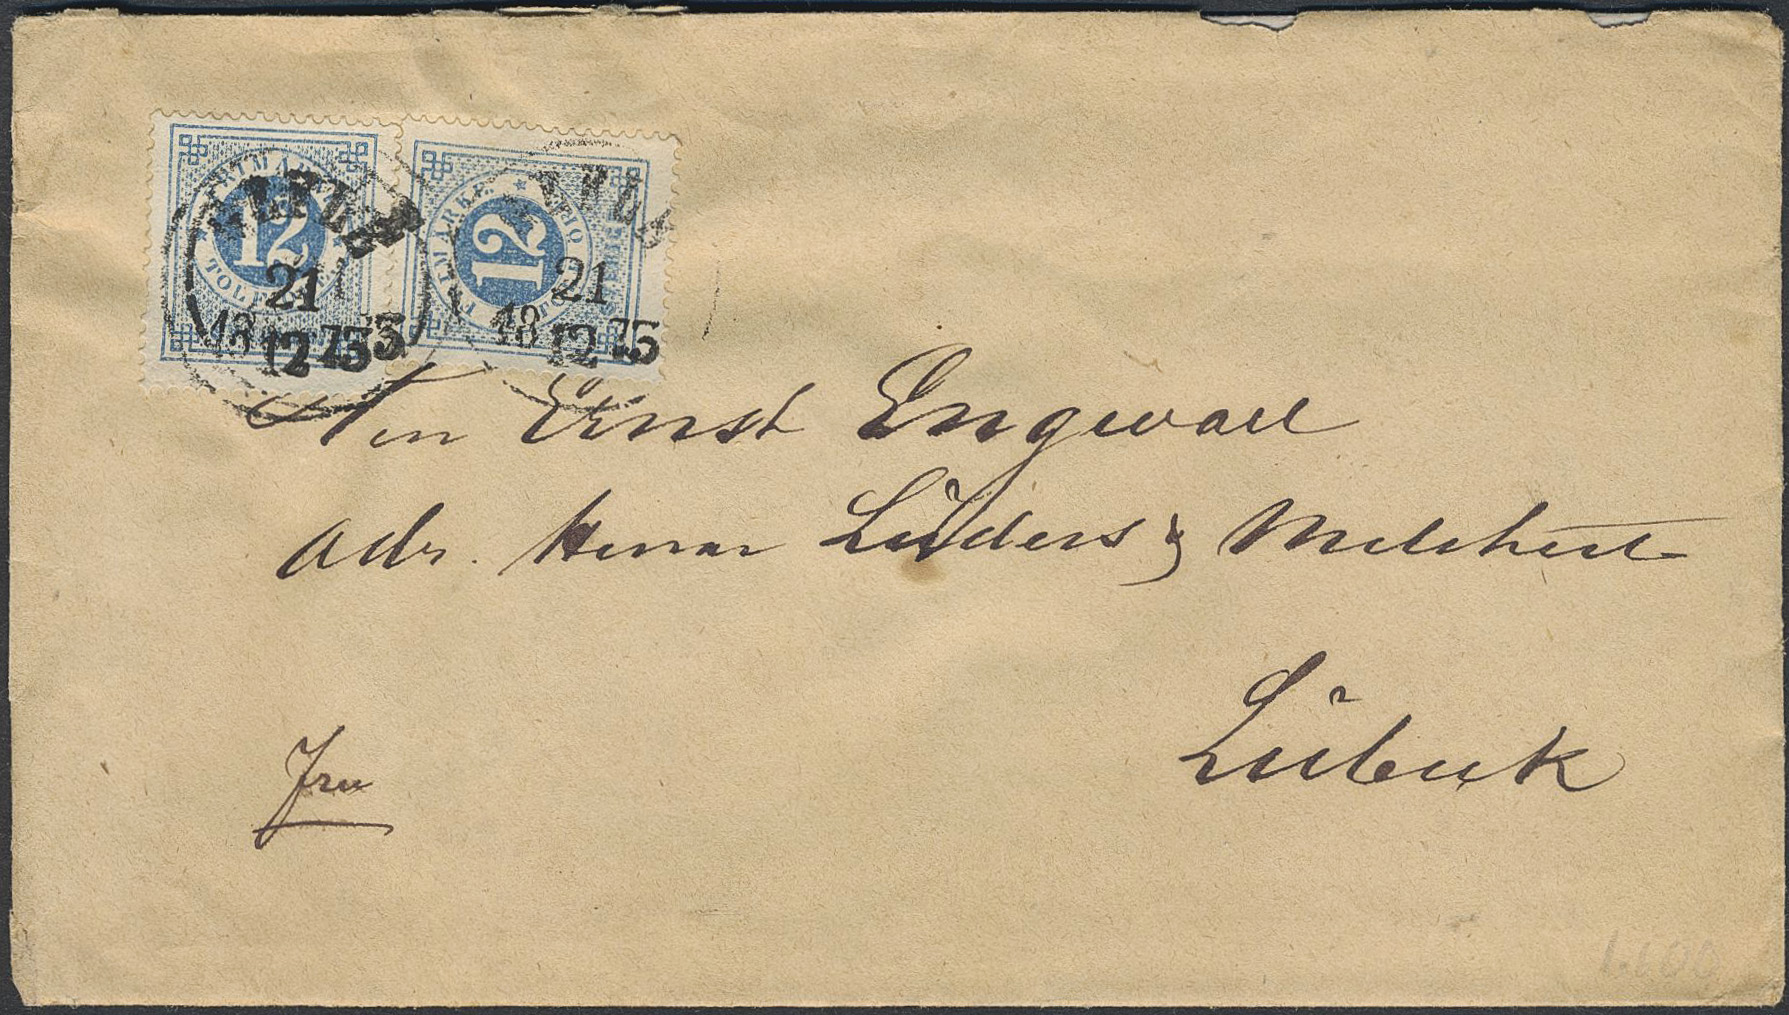 FRIMÄRKE
12
TOLF
21
18 12 75
FRIMÄRKE
12
21
18 12 75
Herr Ernst Engwall
adr. Herrar Lüders & Melchert
Lübeck
Frco
1.600